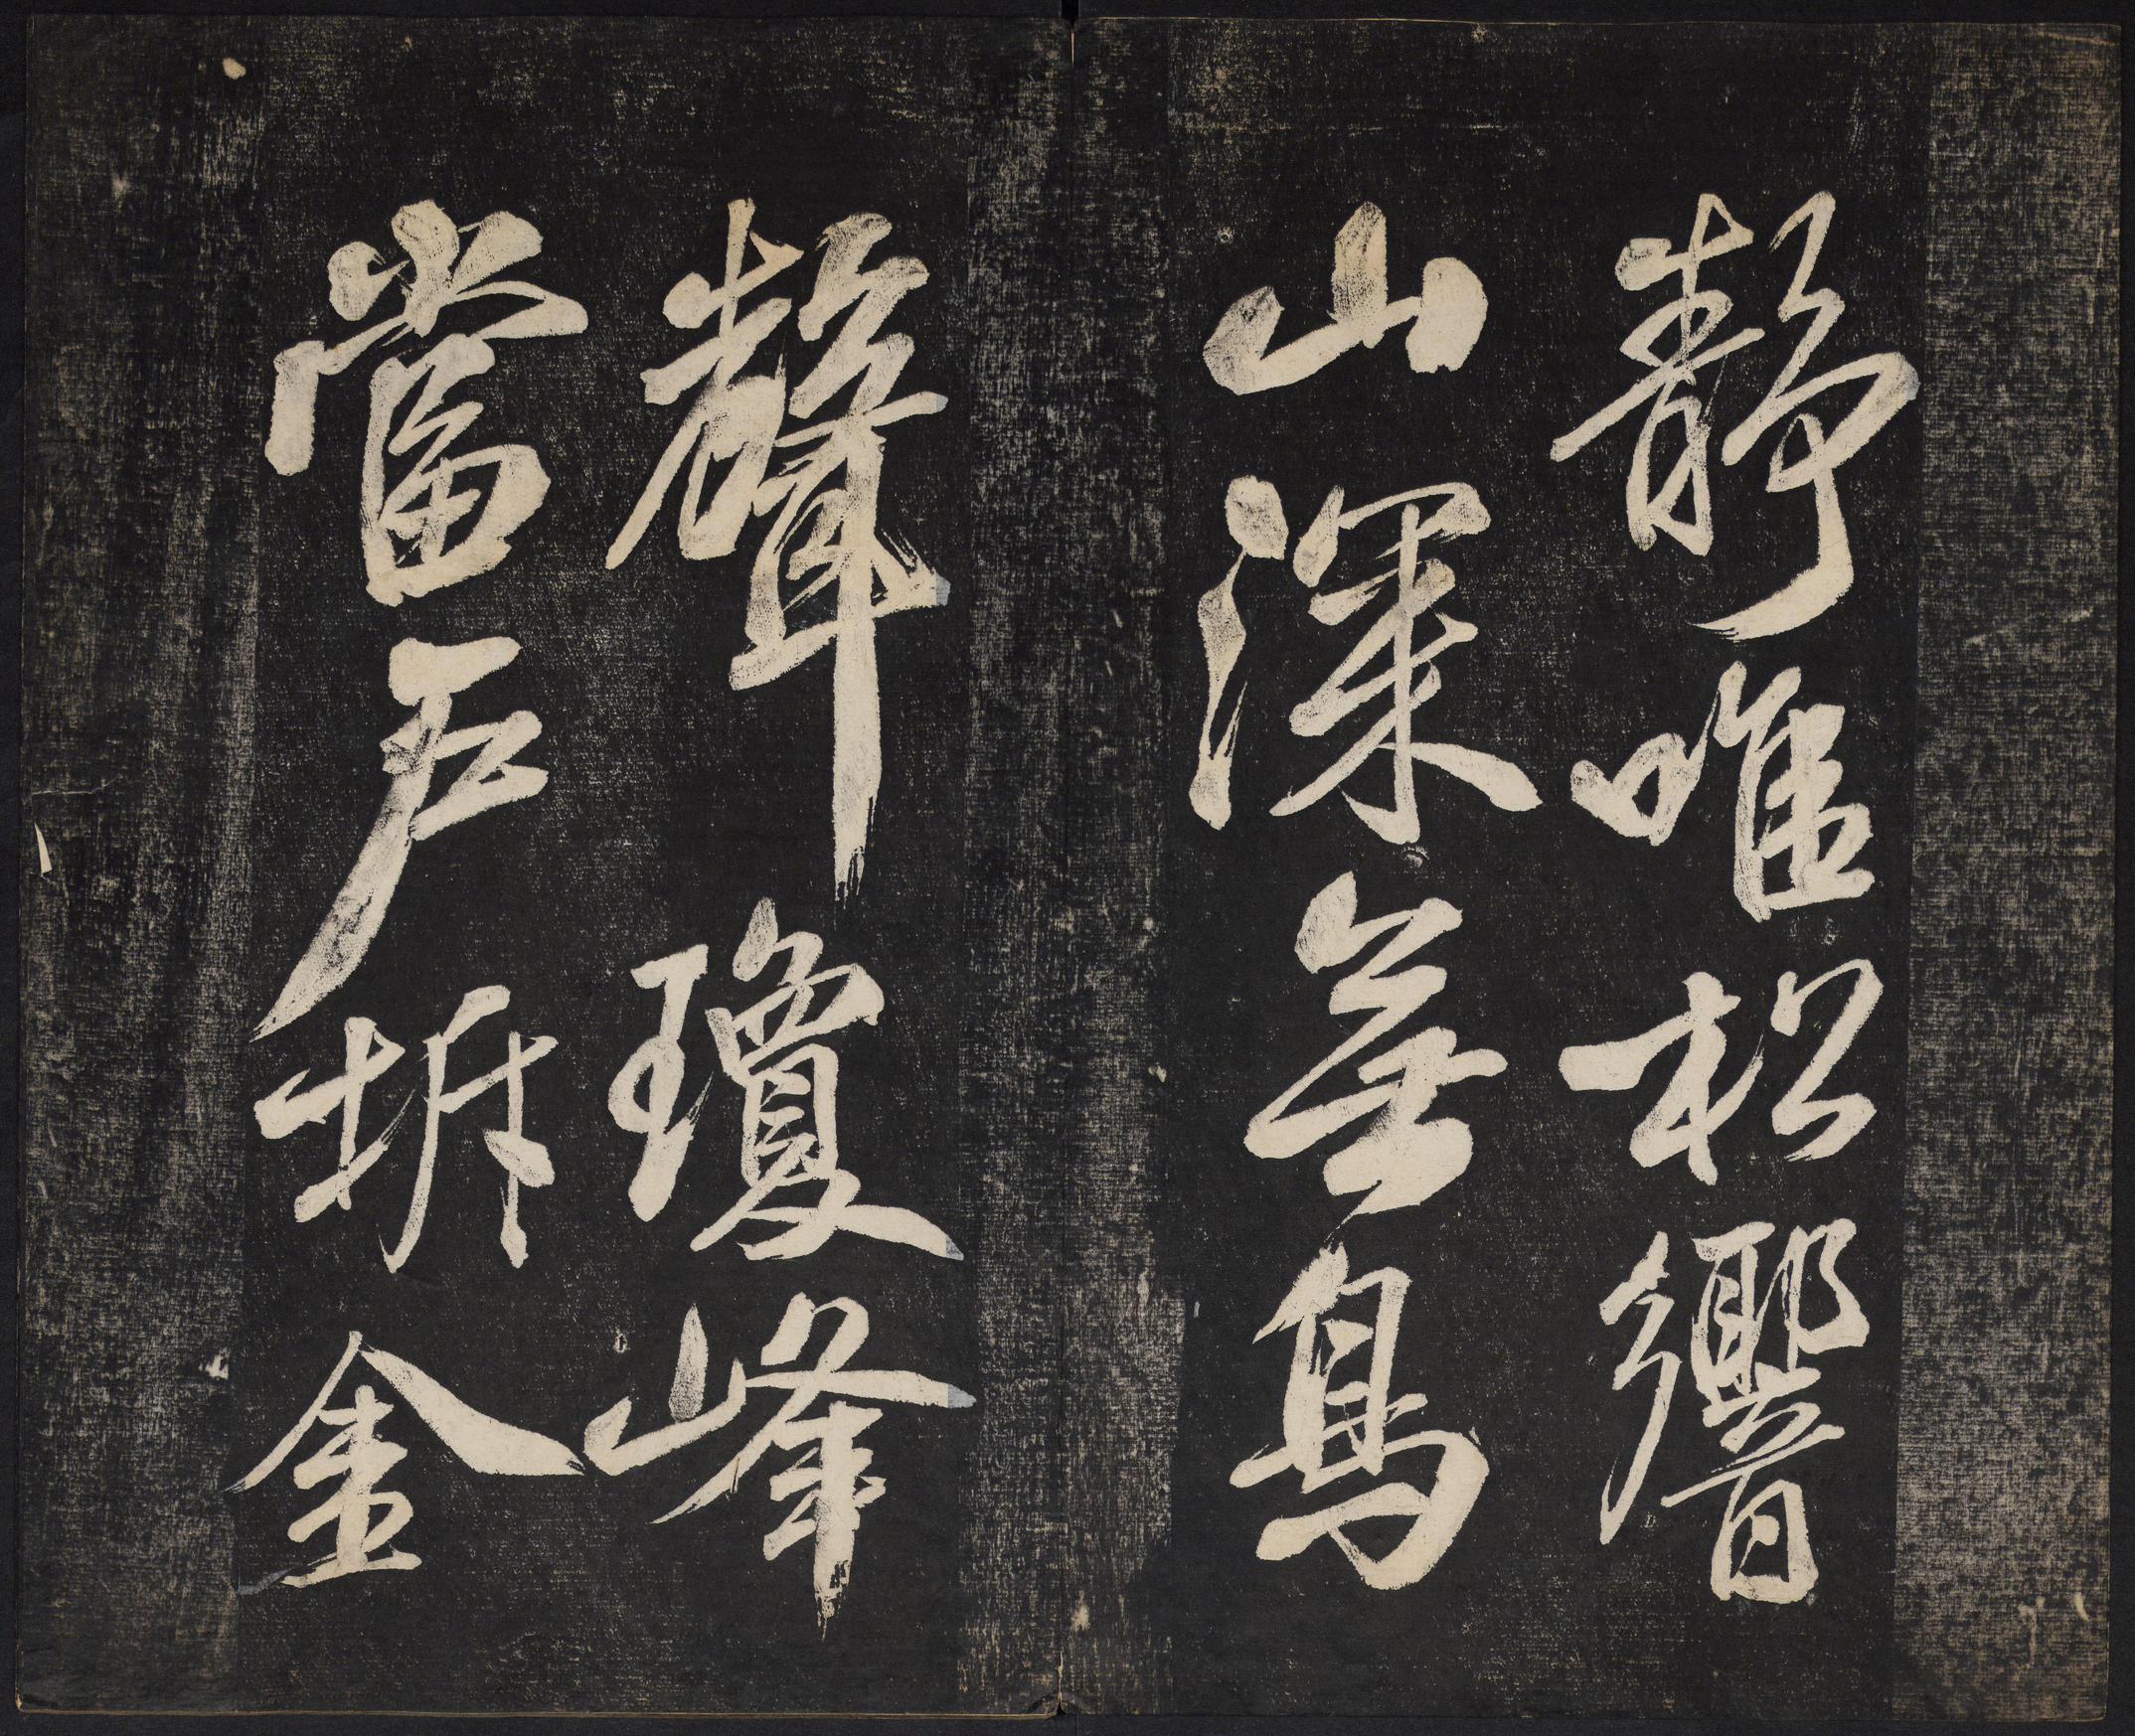 靜唯松響
山深無鳥
聲瓊峰
當戶坼金